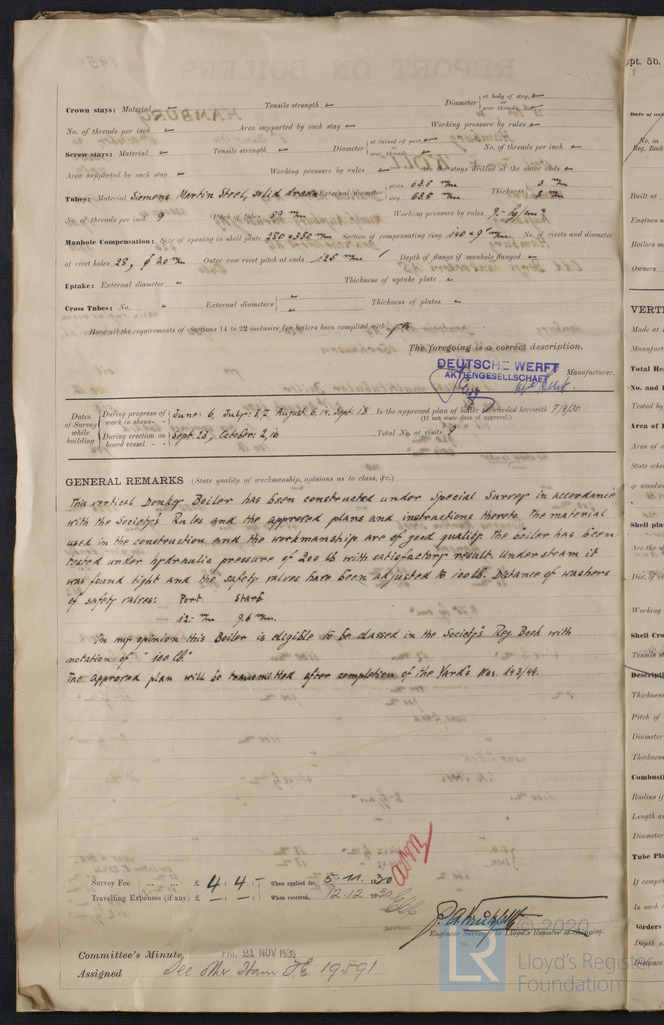 Crown stays: Material Tensile strength Diameter { at body of stay, or over threads
No. of threads per inch Area supported by each stay Working pressure by rules
Screw stays: Material Tensile strength Diameter { at turned off part, or over threads No. of threads per inch
Area supported by each stay Working pressure by rules Are the stays drilled at the outer ends
Tubes: Material Siemens Martin Steel, solid drawn External diameter { plain 63.5 m/m stay 63.5 m/m Thickness { 3 m/m 5 m/m
No. of threads per inch 9 Pitch of tubes 89 m/m Working pressure by rules
Manhole Compensation: Size of opening in shell plate 280 x 380 m/m Section of compensating ring 140 x 9 m/m No. of rivets and diameter
of rivet holes 28, ø 20 m/m Outer row rivet pitch at ends 125 m/m Depth of flange if manhole flanged
Uptake: External diameter Thickness of uptake plate
Cross Tubes: No. External diameters { Thickness of plates
Have all the requirements of Sections 14 to 22 inclusive for boilers been complied with yes
The foregoing is a correct description,
DEUTSCHE WERFT
AKTIENGESELLSCHAFT
Manufacturer.
Dates of Survey while building { During progress of work in shops - - June: 6, July: 3,7 August: 6,14. Sept: 18 Is the approved plan of boiler forwarded herewith 7/8/30
(If not state date of approval.)
During erection on board vessel - - Sept: 23, October: 2,16 Total No. of visits 9
GENERAL REMARKS (State quality of workmanship, opinions as to class, &c.)
This vertical Donkey Boiler has been constructed under Special Survey in accordance
with the Society's Rules and the approved plans and instructions thereto. The material
used in the construction and the workmanship are of good quality. The boiler has been
tested under hydraulic pressure of 200 lb with satisfactory result. Under steam it
was found tight and the safety valves have been adjusted to 100 lb. Distance of washers
of safety valves: Port Starb
12.- m/m 9.6 m/m.
In my opinion this Boiler is eligible to be classed in the Society's Reg. Book with
notation of "100 lb."
The approved plan will be transmitted after completion of the Yard's Nos. 143/44.
Survey Fee ... ... £ 4 : 4 : - When applied for, 5.11. 1930
Travelling Expenses (if any) £ - : - : When received, 12.12 1930
Engineer Surveyor to Lloyd's Register of Shipping.
Committee's Minute FRI. 21 NOV 1930
Assigned See Ham F.E. 19591
© 2020
LR
Lloyd's Register
Foundation
rpt. 5b.
No. in
Reg. Book
Built at
Engines
Boilers
Owners
VERTI
Made at
Manufact
Total He
No. and
Tested by
Area of
Area of
State whe
Shell pla
Are the
Dia. of
Working
Shell Cro
Tensile
Descripti
Thickness
Pitch of
Diameter
Thickness
Combusti
Radius if
Length as
Diameter
Tube Pla
If compr
In each
Girders
Depth a
Distance